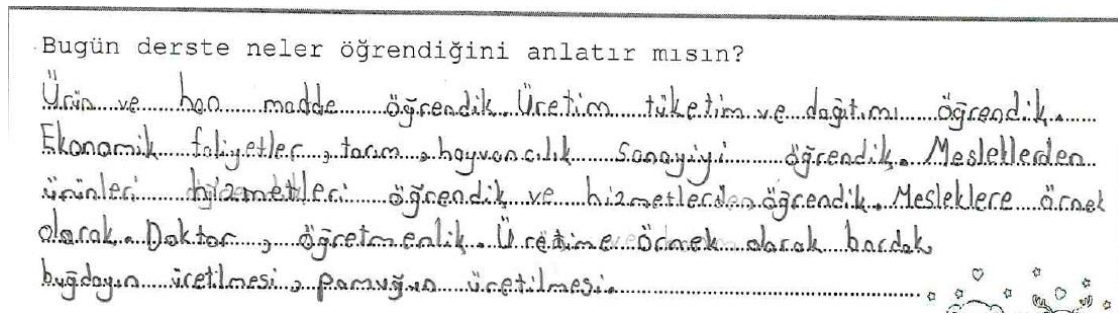 Bugün derste neler öğrendiğini anlatır mısın?
Ürün ve ham madde öğrendik. Üretim tüketim ve dağıtımı öğrendik.
Ekonomik faliyetler, tarım, hayvancılık Sanayiyi öğrendik. Mesleklerden
ürünleri hizmetleri öğrendik ve hizmetlerden öğrendik. Mesleklere örnek
olarak. Doktor, öğretmenlik. Üretime örnek olarak bardak
buğdayın üretilmesi, pamuğun üretilmesi.